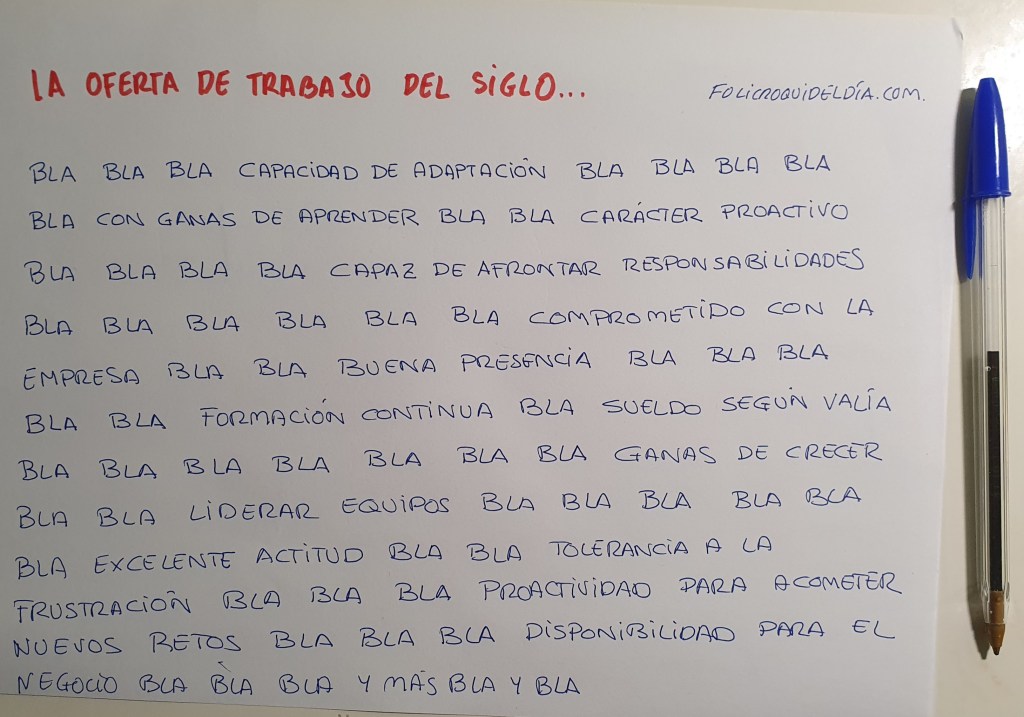 LA OFERTA DE TRABAJO DEL SIGLO...
FOLICROQUIDELDÍA.COM.
BLA BLA BLA CAPACIDAD DE ADAPTACIÓN BLA BLA BLA BLA
BLA CON GANAS DE APRENDER BLA BLA CARÁCTER PROACTIVO
BLA BLA BLA BLA CAPAZ DE AFRONTAR RESPONSABILIDADES
BLA BLA BLA BLA BLA BLA COMPROMETIDO CON LA
EMPRESA BLA BLA BUENA PRESENCIA BLA BLA BLA
BLA BLA FORMACIÓN CONTINUA BLA SUELDO SEGÚN VALÍA
BLA BLA BLA BLA BLA BLA BLA GANAS DE CRECER
BLA BLA LIDERAR EQUIPOS BLA BLA BLA BLA BLA
BLA EXCELENTE ACTITUD BLA BLA TOLERANCIA A LA
FRUSTRACIÓN BLA BLA BLA PROACTIVIDAD PARA ACOMETER
NUEVOS RETOS BLA BLA BLA DISPONIBILIDAD PARA EL
NEGOCIO BLA BLA BLA Y MÁS BLA Y BLA